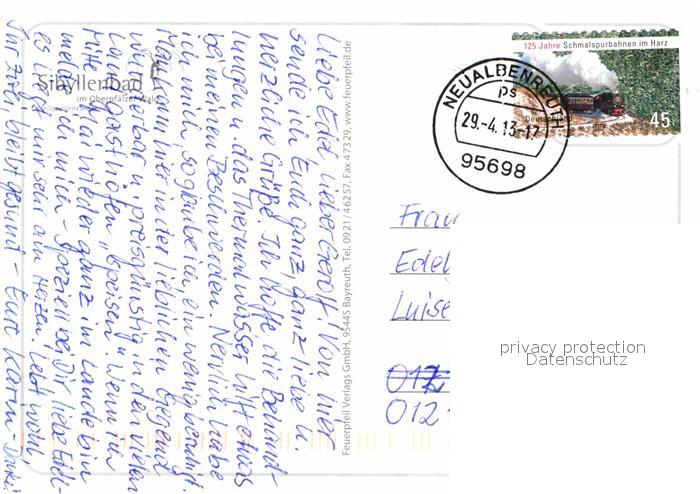 Sibyllenbad
im Oberpfälzer Wald
Liebe Edel, liebe Gerolf! Von hier
sende ich Euch ganz, ganz liebe u.
herzliche Grüße. Ich hoffe die Behand-
lungen u. das Thermalwasser hilft etwas
bei meinen Beschwerden. Nervlich habe
ich mich, so glaube ich, ein wenig beruhigt.
Man kann hier in der lieblichen Gegend
wunderbar u. preisgünstig in den vielen
Landgasthöfen "speisen". Wenn ich
Mitte Mai wieder ganz im Lande bin
melde ich mich - speziell bei Dir liebe Edel-
es liegt mir sehr am Herzen! Lebt wohl
Ihr Zwei, bleibt gesund - Eure Karin
Danke!
Feuerpfeil Verlags GmbH, 95445 Bayreuth, Tel. 0921 / 46257, Fax 47329, www.feuerpfeil.de
125 Jahre Schmalspurbahnen im Harz
Deutschland
45
NEUALBENREUTH
ps
29.-4.13-17
95698
Frau
Edel
Luise
012
012
privacy protection
Datenschutz